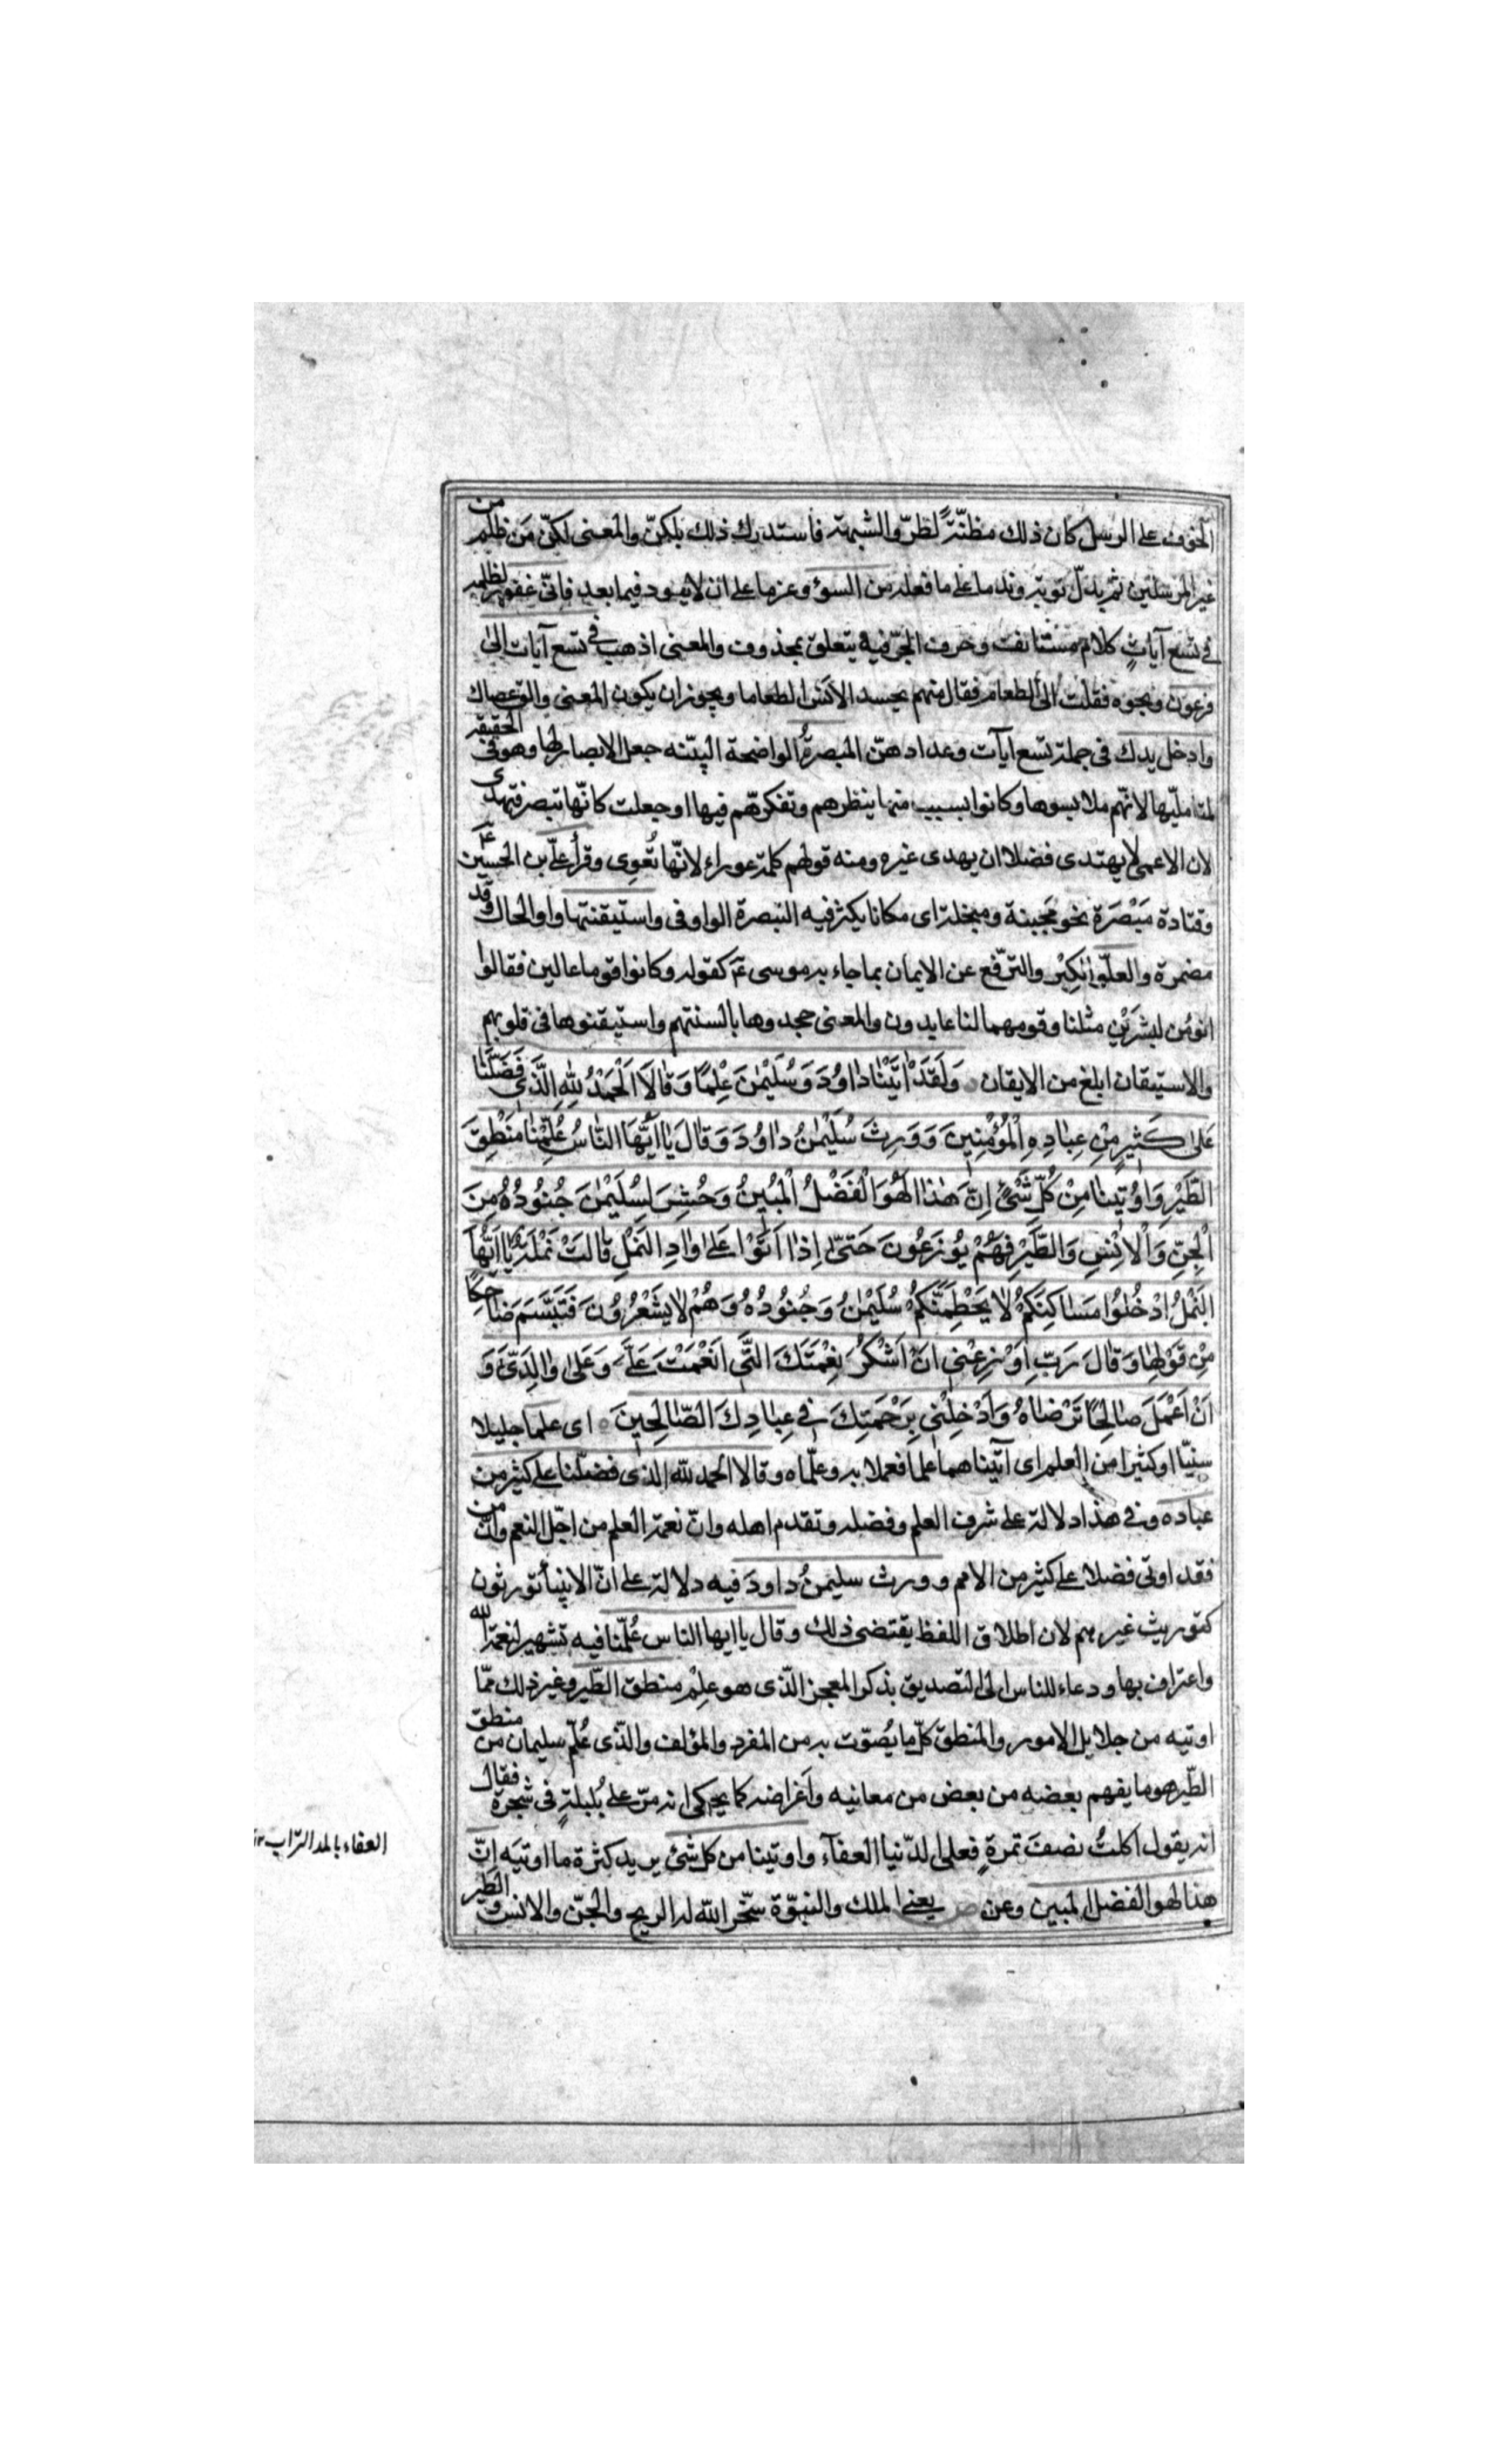 الخوف على الرسل كان ذلك مظنّةً لظرّ والشبهة فاستدرك ذلك بلكنّ والمعنى لكنّ مَن ظلم من
غير المرسلين ثم بدّل توبة وندما على ما فعله من السوؤ وعزما على ان لا يعود فيما بعد فانّى غفور لظلمه
فى تسع آياتٍ كلام مستانف وحرف الجرّ فيه يتعلق بمحذوف والمعنى اذهب فى تسع آيات الىٰ
فرعون ونحوه فقلت الى الطعام فقال منهم يحسد الانس الطعاما ويجوز ان يكون المعنى والق عصاك
وادخل يدك فى جملة تسع آيات وعدادهنّ المبصرةُ الواضحة البيّنه جعل الابصار لها وهو فى الحقيقة
لمتامليّها لانّهم ملابسوها وكانوا بسبب منها بنظرهم وتفكرهم فيها او جعلت كانّها تبصر فتهدى
لان الاعمى لا يهتدى فضلا ان يهدى غيره ومنه قولهم كلمة عوراء لانّها تُغوِى وقرأ علىّ بن الحسين عٓ
وقتادة مَبْصَرَة نحو مَجبنة ومبخلة اى مكانا يكثر فيه التبصرة الواو فى واستيقنتها واو الحال وقد
مضمرة والعلوّ الكِبْر والترفّع عن الايمان بما جاء به موسى عٓ كقوله وكانوا قوما عالين فقالوا
انؤمن لبشرَيْنِ مثلنا وقومهما لنا عابدون والمعنى جحدوها بالسنتهم واستيقنوها فى قلوبهم
والاستيقان ابلغ من الايقان وَلَقَدْ اٰتَيْنٰا دٰاوُدَ وَسُلَيْمٰنَ عِلْمًا وَقٰالَا اَلْحَمْدُ لِلّٰهِ الَّذٖى فَضَّلَنٰا
عَلىٰ كَثٖيرٍ مِنْ عِبٰادِهِ الْمُؤْمِنٖينَ وَوَرِثَ سُلَيْمٰنُ دٰاوُدَ وَقٰالَ يٰا اَيُّهَا النّٰاسُ عُلِّمْنٰا مَنْطِقَ
الطَّيْرِ وَاُوتٖينٰا مِنْ كُلِّ شَیْءٍ اِنَّ هٰذٰا لَهُوَ الْفَضْلُ الْمُبٖينُ وَحُشِرَ لِسُلَيْمٰنَ جُنُودُهُ مِنَ
الْجِنِّ وَالْاِنْسِ وَالطَّيْرِ فَهُمْ يُوزَعُونَ حَتّىٰ اِذٰا اَتَوْا عَلىٰ وٰادِ النَّمْلِ قٰالَتْ نَمْلَةٌ يٰا اَيُّهَا
النَّمْلُ ادْخُلُوا مَسٰاكِنَكُمْ لٰا يَحْطِمَنَّكُمْ سُلَيْمٰنُ وَجُنُودُهُ وَهُمْ لٰا يَشْعُرُونَ فَتَبَسَّمَ ضٰاحِكًا
مِنْ قَوْلِهٰا وَقٰالَ رَبِّ اَوْزِعْنٖى اَنْ اَشْكُرَ نِعْمَتَكَ الَّتٖى اَنْعَمْتَ عَلَىَّ وَعَلىٰ وٰالِدَىَّ وَ
اَنْ اَعْمَلَ صٰالِحًا تَرْضٰاهُ وَاَدْخِلْنٖى بِرَحْمَتِكَ فٖى عِبٰادِكَ الصّٰالِحٖينَ اى علما جليلا
سنيّا او كثيرا من العلم اى آتيناهما علما فعملا به وعلّماه وقالا الحمد للّه الذى فضّلنا على كثير من
عباده وفى هذا دلالة على شرف العلم وفضله وتقدم اهله وانّ نعمة العلم من اجلّ النعم وانّ من
فقد اوتى فضلا على كثير من الامم وورث سليمنُ داودَ فيه دلالة على انّ الانبيأ تورثون
كتوريث غيرهم لان اطلاق اللفظ يقتضى ذلك وقال يا ايها الناس عُلّمنا فيه تشهير لنعمة اللّه
واعتراف بها ودعاء للناس الى التصديق بذكر المعجز الّذى هو عِلْم منطق الطّير وغير ذلك ممّا
اوتيه من جلايل الامور والمنطق كلّ ما يُصوّت به من المفرد والمؤلف والّذى عُلّم سليمان من منطق
الطّير هو ما يفهم بعضه من بعض من معانيه واَغراضه كما يحكى انه مرّ على بُلبلةٍ فى شجرة فقال
انه يقول اكلتُ نصفَ تمرةٍ فعلى الدّنيا العفآء واوتينا من كل شئ يريد كثرة ما اوتيَه اِنّ
هذا لهو الفضل المبين وعن ص يعنى الملك والنبوّة سخّر اللّه له الريح والجنّ والانس والطير
العفاء بالمد التراب ١٢